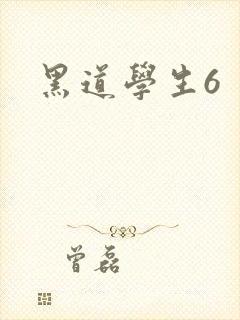 黑道學生6
曾磊